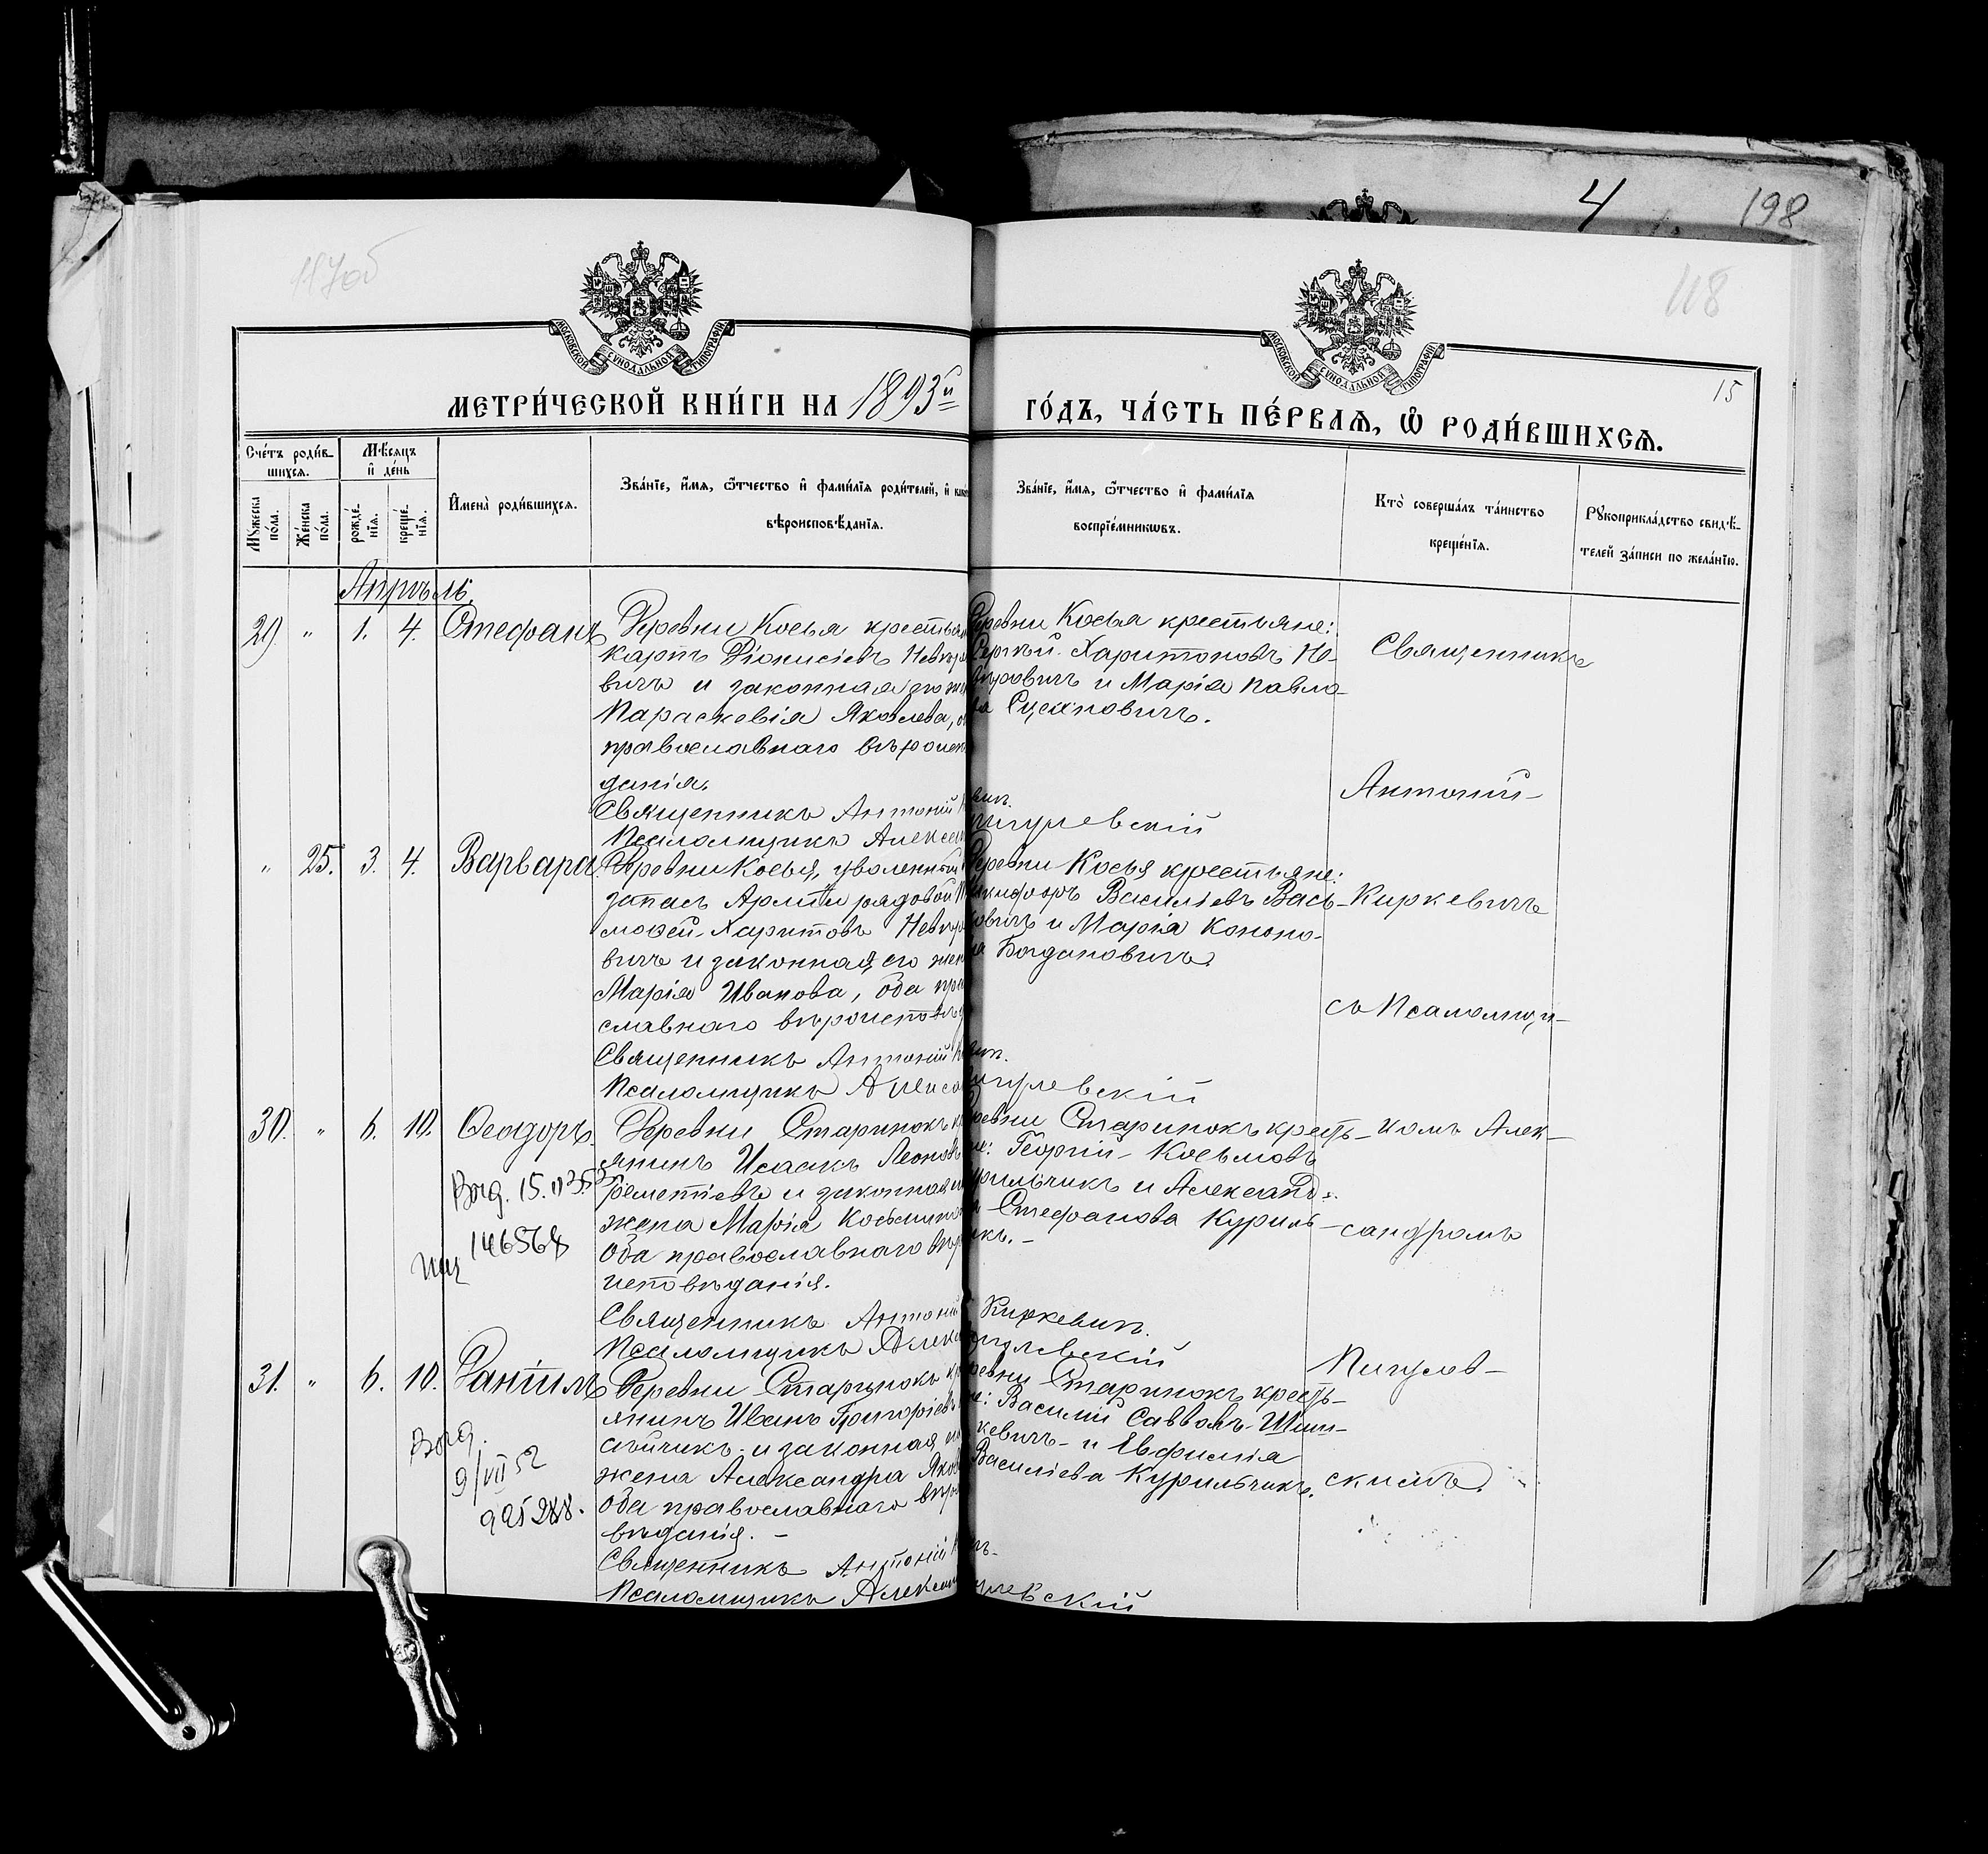 4
198
117об
118
МОСКОВСКОЙ СѴНОДАЛЬНОЙ ТИПОГРАФІИ
МОСКОВСКОЙ СѴНОДАЛЬНОЙ ТИПОГРАФІИ
15
МЕТРИ́ЧЕСКОЙ КНИ́ГИ НА 1893й
ГО́ДЪ, ЧА́СТЬ ПЕ́РВАѦ, Ѽ РОДИ́ВШИХСѦ.
Сче́тъ роди́в-
шихся.
Мѣ́сяцъ
и҆ де́нь
Мꙋжеска по́ла.
Же́нска по́ла.
рожде́-
нїѧ.
креще́-
нїѧ.
И҆мена̀ роди́вшихся.
Зва́нїе, и҆́мѧ, ѻ҆́тчество и҆ фами́лїѧ роди́телей, и҆ како
вѣроисповѣ́данїѧ.
Зва́нїе, и҆́мѧ, ѻ҆́тчество и҆ фами́лїѧ
воспрїе́мникѡвъ.
Кто̀ соверша́лъ та́инство
креще́нїѧ.
Рꙋкоприкла́дство свидѣ́-
телей за́писи по жела́нїю.
Апрѣль.
29. " 1. 4. Стефанъ
Деревни Косья крестьян
Карпъ Діонисіевъ Невѣро
вичъ и законная его жен
Параскевія Яковлева, об
православнаго вѣроиспо
данія.
Священникъ Антоній
Псаломщикъ Алексан
Деревни Косья крестьяне:
Сергѣй Харитоновъ Не-
вѣровичъ и Марія Павло-
ва
Пигулевскій
Священникъ
Антоній
" 25. 3. 4. Варвара.
Деревни Косья, уволенный
запасъ Арміи рядовой
Харитовъ Невѣро
вичъ и законная его жен
Марія Иванова, оба пра
славнаго вѣроисповѣд
Священникъ Антоній
Псаломщикъ Алексан
Деревни Косья крестьяне:
Никифоръ Василіевъ Вась-
ковичъ и Марія Конопо-
ва Богдановичъ.
Пигулевскій
Киркевичъ
съ Псаломщи-
30. " 6. 10. Ѳеодоръ.
Выд. 15.
146568
Деревни Старинокъ к
янинъ Исаакъ Леонов
и законная
жена Марія Косьмина
оба православнаго вѣро
исповѣданія.
Священникъ Антоній Киркевич.
Псаломщикъ Алекс
Деревни Старинокъ кресть-
не: Георгій Косьмовъ
Курильчикъ и Александ-
ра Стефанова Куриль-
чикъ.
Пигулевскій
комъ Алек-
сандромъ
31. " 6. 10. Даніилъ
Выд.
9/VII 52
Деревни Старинокъ кр
янинъ Иванъ Григоріевъ
и законная его
жена Александра Яков
оба православнаго вѣро
вѣданія.
Священникъ Антоній
Псаломщикъ Алексан
Деревни Старинокъ кресть-
не: Василій Саввовъ Шиш-
кевичъ и Евфимія
Василіева Курильчикъ.
Пигулевскій
Пигулев-
скимъ.